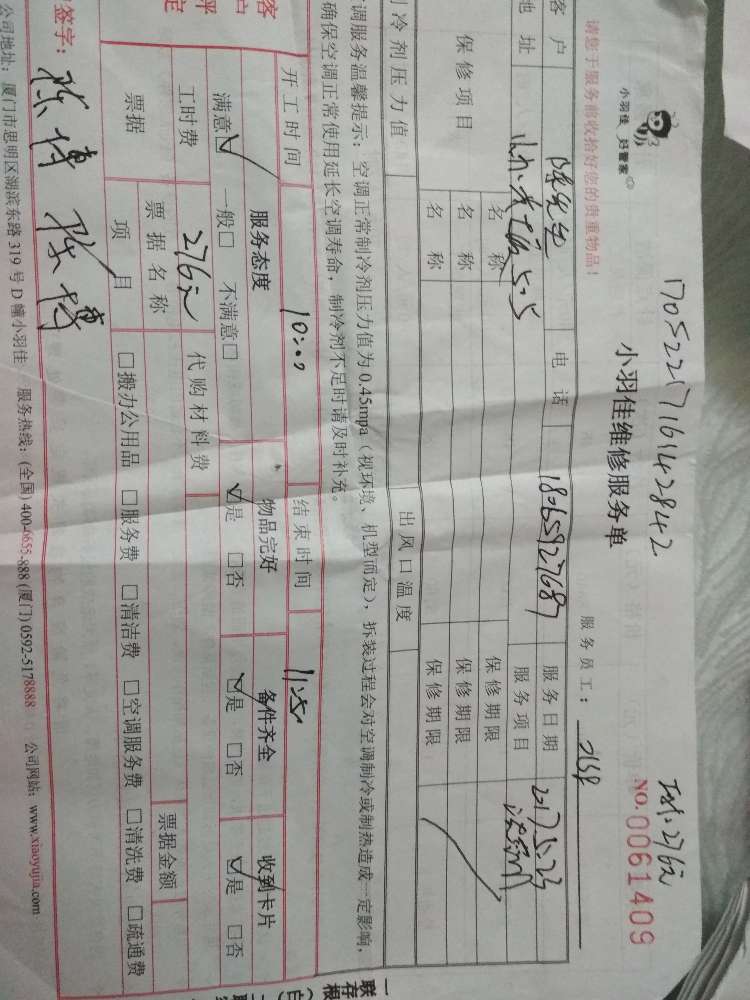 1705221716142842
小羽佳 好管家
小羽佳维修服务单
NO.0061409
请您于服务前收拾好您的贵重物品!
服务员工:
客户 陈先生 电话 18065927687 服务日期 2017.5.23
地址 服务项目
保修项目 名称 保修期限
名称 保修期限
名称 保修期限
制冷剂压力值 出风口温度
调服务温馨提示:空调正常制冷剂压力值为0.45mpa(视环境、机型而定),拆装过程会对空调制冷或制热造成一定影响,
确保空调正常使用延长空调寿命,制冷剂不足时请及时补充。
开工时间 10:00 结束时间 11:50
客户评定 服务态度 物品完好 备件齐全 收到卡片
满意☑ 一般□ 不满意□ ☑是 □否 ☑是 □否 ☑是 □否
工时费 276元 代购材料费
票据 票据名称 票据金额
项目 □搬办公用品 □服务费 □清洁费 □空调服务费 □清洗费 □疏通费
签字: 陈博 陈博
公司地址:厦门市思明区湖滨东路319号D幢小羽佳 服务热线:(全国)400-4655-888 (厦门)0592-5178888 公司网站:www.xiaoyujia.com
一联
存根